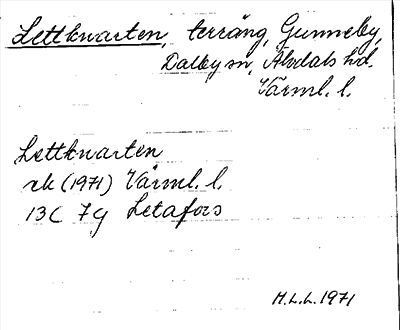 Lettkvarten, terräng, Gunneby,
Dalby sn, Älvdals hd.
Värml. l.
Lettkvarten
rk (1971) Värml. l.
13C 7g Letafors
H.L.L. 1971